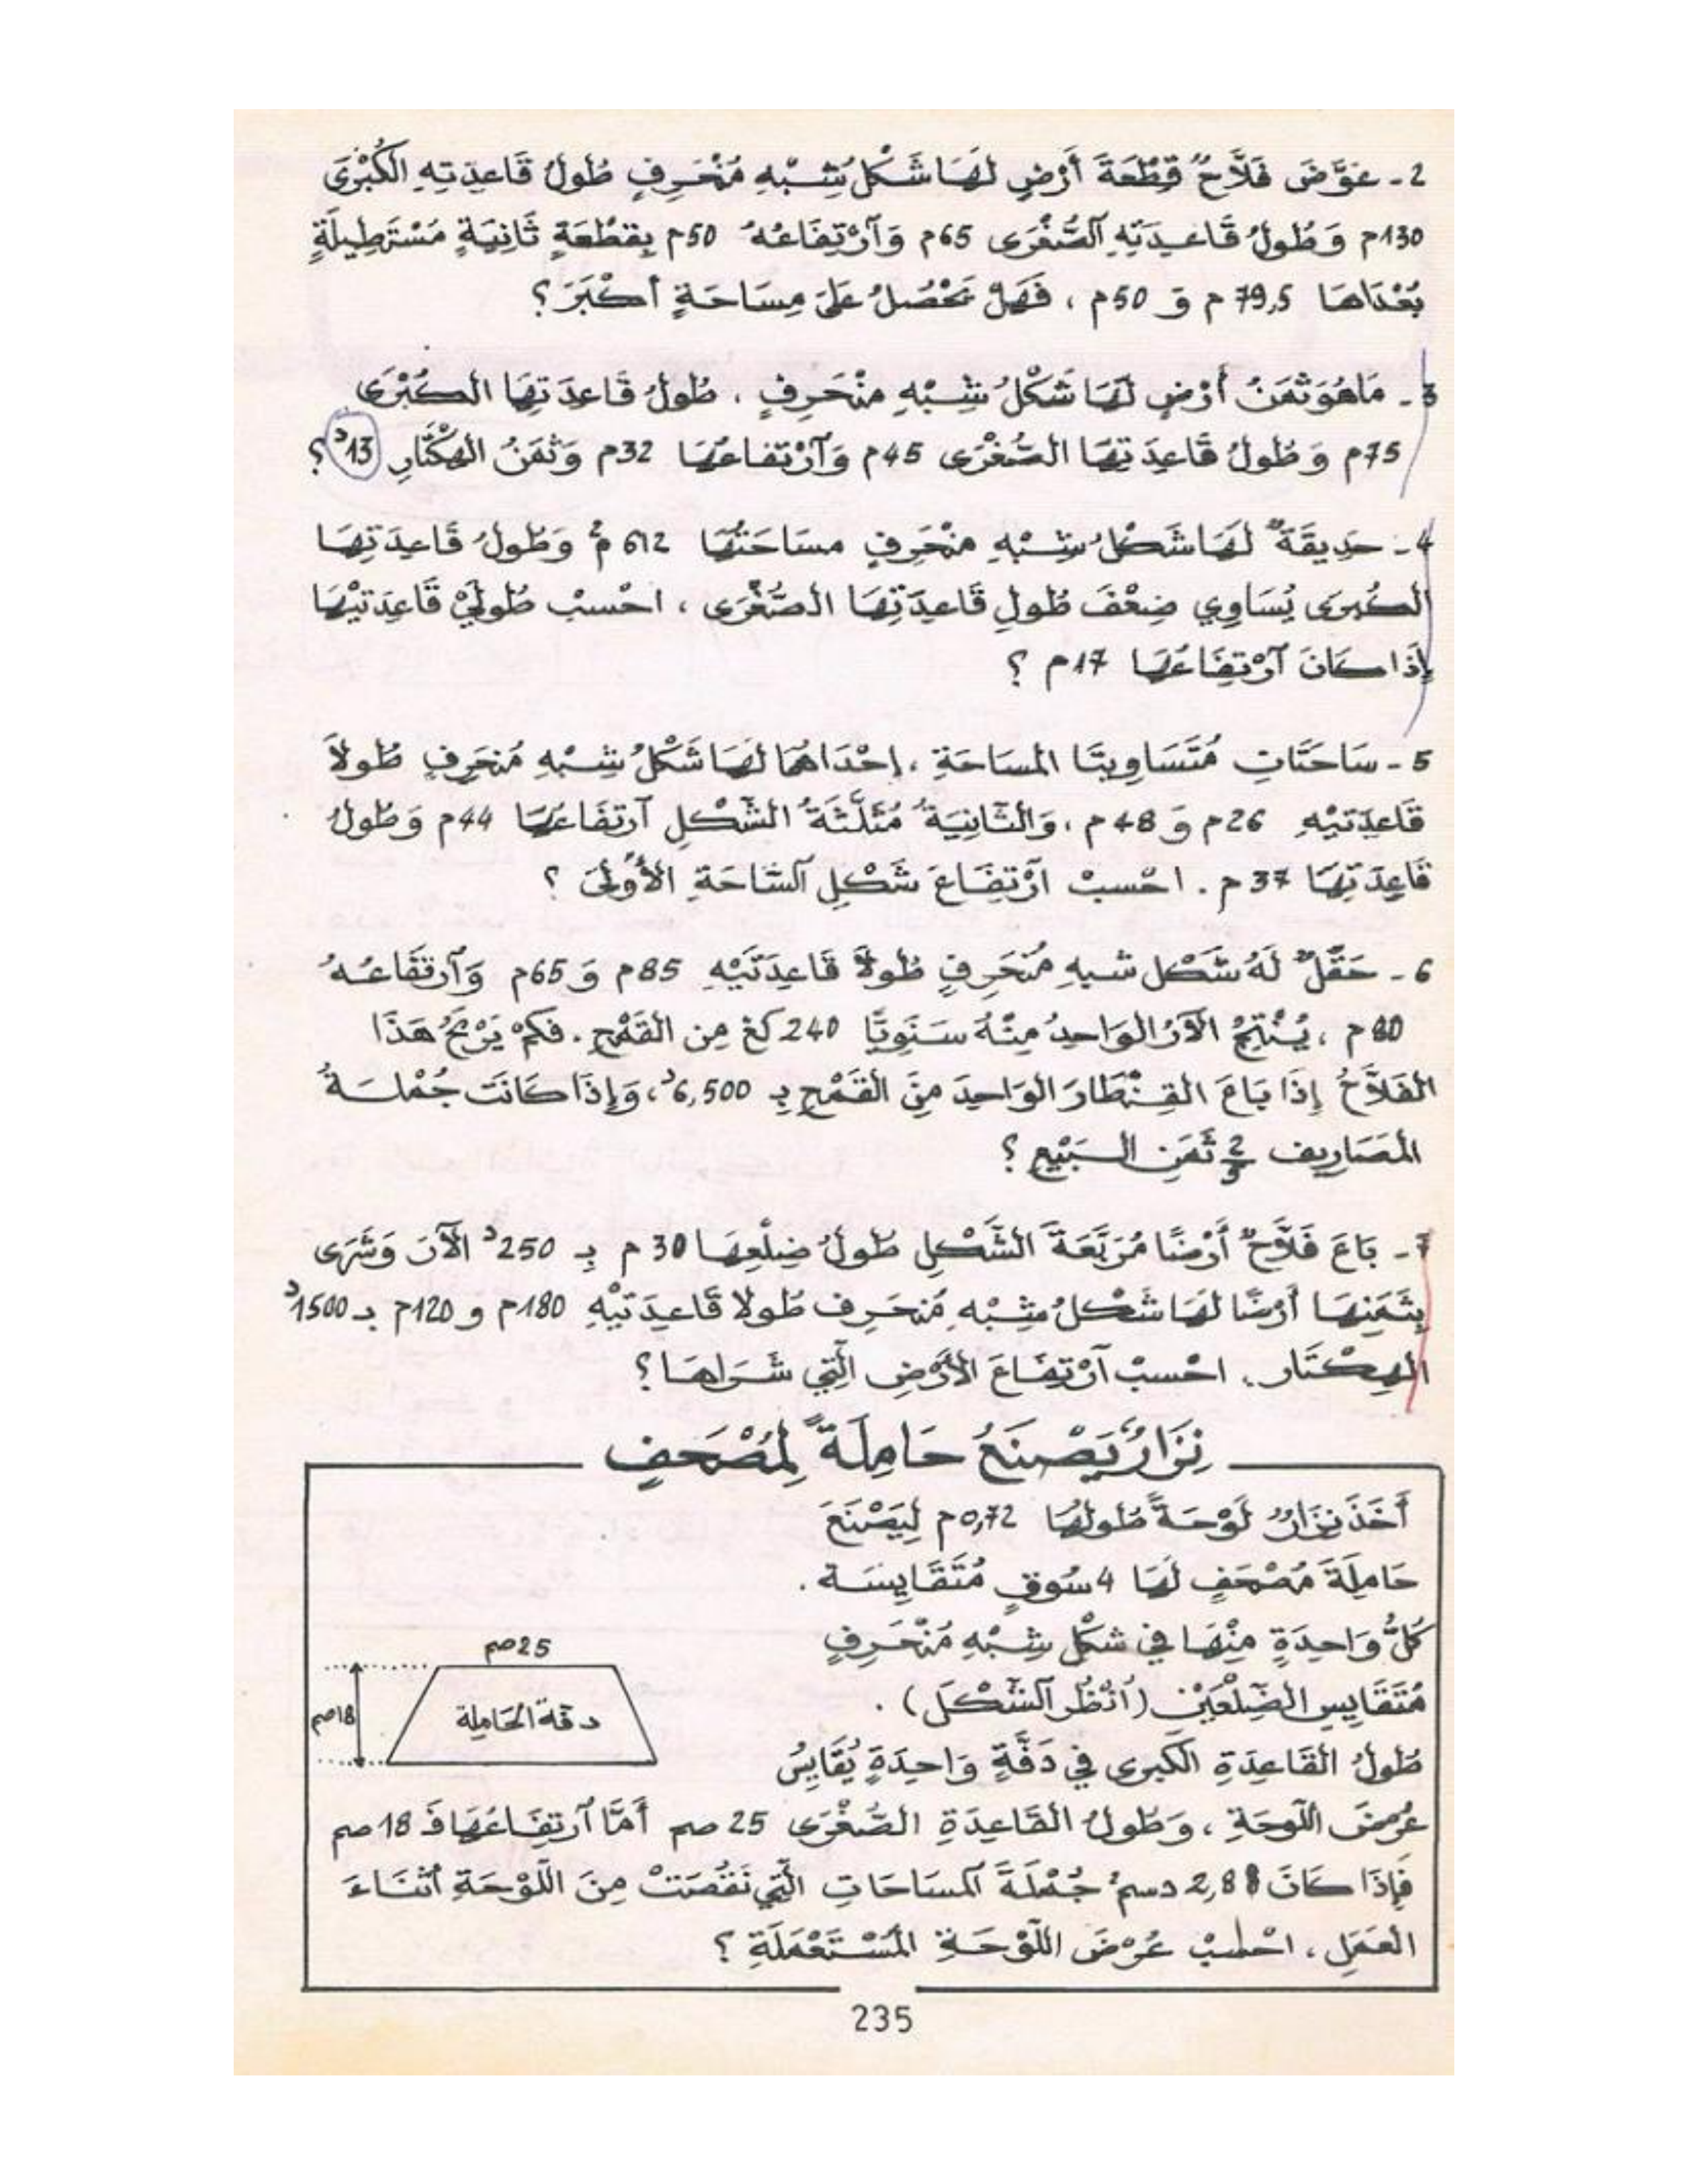 2- عَوَّضَ فَلَّاحٌ قِطْعَةَ أَرْضٍ لَهَا شَكْلُ شِبْهِ مُنْحَرِفٍ طُولُ قَاعِدَتِهِ الْكُبْرَى
130م وَطُولُ قَاعِدَتِهِ الصُّغْرَى 65م وَارْتِفَاعُهُ 50م بِقِطْعَةٍ ثَانِيَةٍ مُسْتَطِيلَةٍ
بُعْدَاهَا 79,5م وَ 50م ، فَهَلْ تَحْصُلُ عَلَى مِسَاحَةٍ أَكْبَرَ ؟
3- مَا هُوَ ثَمَنُ أَرْضٍ لَهَا شَكْلُ شِبْهِ مُنْحَرِفٍ ، طُولُ قَاعِدَتِهَا الْكُبْرَى
75م وَطُولُ قَاعِدَتِهَا الصُّغْرَى 45م وَارْتِفَاعُهَا 32م وَثَمَنُ الْهِكْتَارِ 13د ؟
4- حَدِيقَةٌ لَهَا شَكْلُ شِبْهِ مُنْحَرِفٍ مِسَاحَتُهَا 612 م² وَطُولُ قَاعِدَتِهَا
الْكُبْرَى يُسَاوِي ضِعْفَ طُولِ قَاعِدَتِهَا الصُّغْرَى ، احْسِبْ طُولَيْ قَاعِدَتَيْهَا
إِذَا كَانَ ارْتِفَاعُهَا 17م ؟
5- سَاحَتَانِ مُتَسَاوِيَتَا الْمِسَاحَةِ ، إِحْدَاهُمَا لَهَا شَكْلُ شِبْهِ مُنْحَرِفٍ طُولَا
قَاعِدَتَيْهِ 26م وَ 48م ، وَالثَّانِيَةُ مُثَلَّثَةُ الشَّكْلِ ارْتِفَاعُهَا 44م وَطُولُ
قَاعِدَتِهَا 37م . احْسِبْ ارْتِفَاعَ شَكْلِ السَّاحَةِ الْأُولَى ؟
6- حَقْلٌ لَهُ شَكْلُ شِبْهِ مُنْحَرِفٍ طُولَا قَاعِدَتَيْهِ 85م وَ 65م وَارْتِفَاعُهُ
80م ، يُنْتِجُ الْآرُ الْوَاحِدُ مِنْهُ سَنَوِيًّا 240 كغ مِنَ الْقَمْحِ . فَكَمْ يَرْبَحُ هَذَا
الْفَلَّاحُ إِذَا بَاعَ الْقِنْطَارَ الْوَاحِدَ مِنَ الْقَمْحِ بِـ 6,500د ، وَإِذَا كَانَتْ جُمْلَةُ
الْمَصَارِيفِ ثَمَنِ الْبَيْعِ ؟
7- بَاعَ فَلَّاحٌ أَرْضًا مُرَبَّعَةَ الشَّكْلِ طُولُ ضِلْعِهَا 30 م بِـ 250د الْآرَ وَشَرَى
بِثَمَنِهَا أَرْضًا لَهَا شَكْلُ شِبْهِ مُنْحَرِفٍ طُولَا قَاعِدَتَيْهِ 180م و 120م بـ 1500د
الْهِكْتَارَ . احْسِبْ ارْتِفَاعَ الْأَرْضِ الَّتِي شَرَاهَا ؟
نِزَارُ يَصْنَعُ حَامِلَةً لِمُصْحَفٍ
أَخَذَ نِزَارُ لَوْحَةً طُولُهَا 0,72م لِيَصْنَعَ
حَامِلَةَ مُصْحَفٍ لَهَا 4 سُوقٍ مُتَقَايِسَة .
كُلُّ وَاحِدَةٍ مِنْهَا فِي شَكْلِ شِبْهِ مُنْحَرِفٍ
مُتَقَايِسِ الضِّلْعَيْنِ (اُنْظُرِ الشَّكْلَ) .
طُولُ الْقَاعِدَةِ الْكُبْرَى فِي دَفَّةٍ وَاحِدَةٍ يُقَايِسُ
عُرْضَ اللَّوْحَةِ ، وَطُولُ الْقَاعِدَةِ الصُّغْرَى 25 صم أَمَّا ارْتِفَاعُهَا فَـ 18 صم
فَإِذَا كَانَ 2,88 دسم² جُمْلَةَ الْمِسَاحَاتِ الَّتِي نَقُصَتْ مِنَ اللَّوْحَةِ أَثْنَاءَ
الْعَمَلِ ، احْسِبْ عُرْضَ اللَّوْحَةِ الْمُسْتَعْمَلَةِ ؟
25صم
18صم
دفة الحَامِلة
235